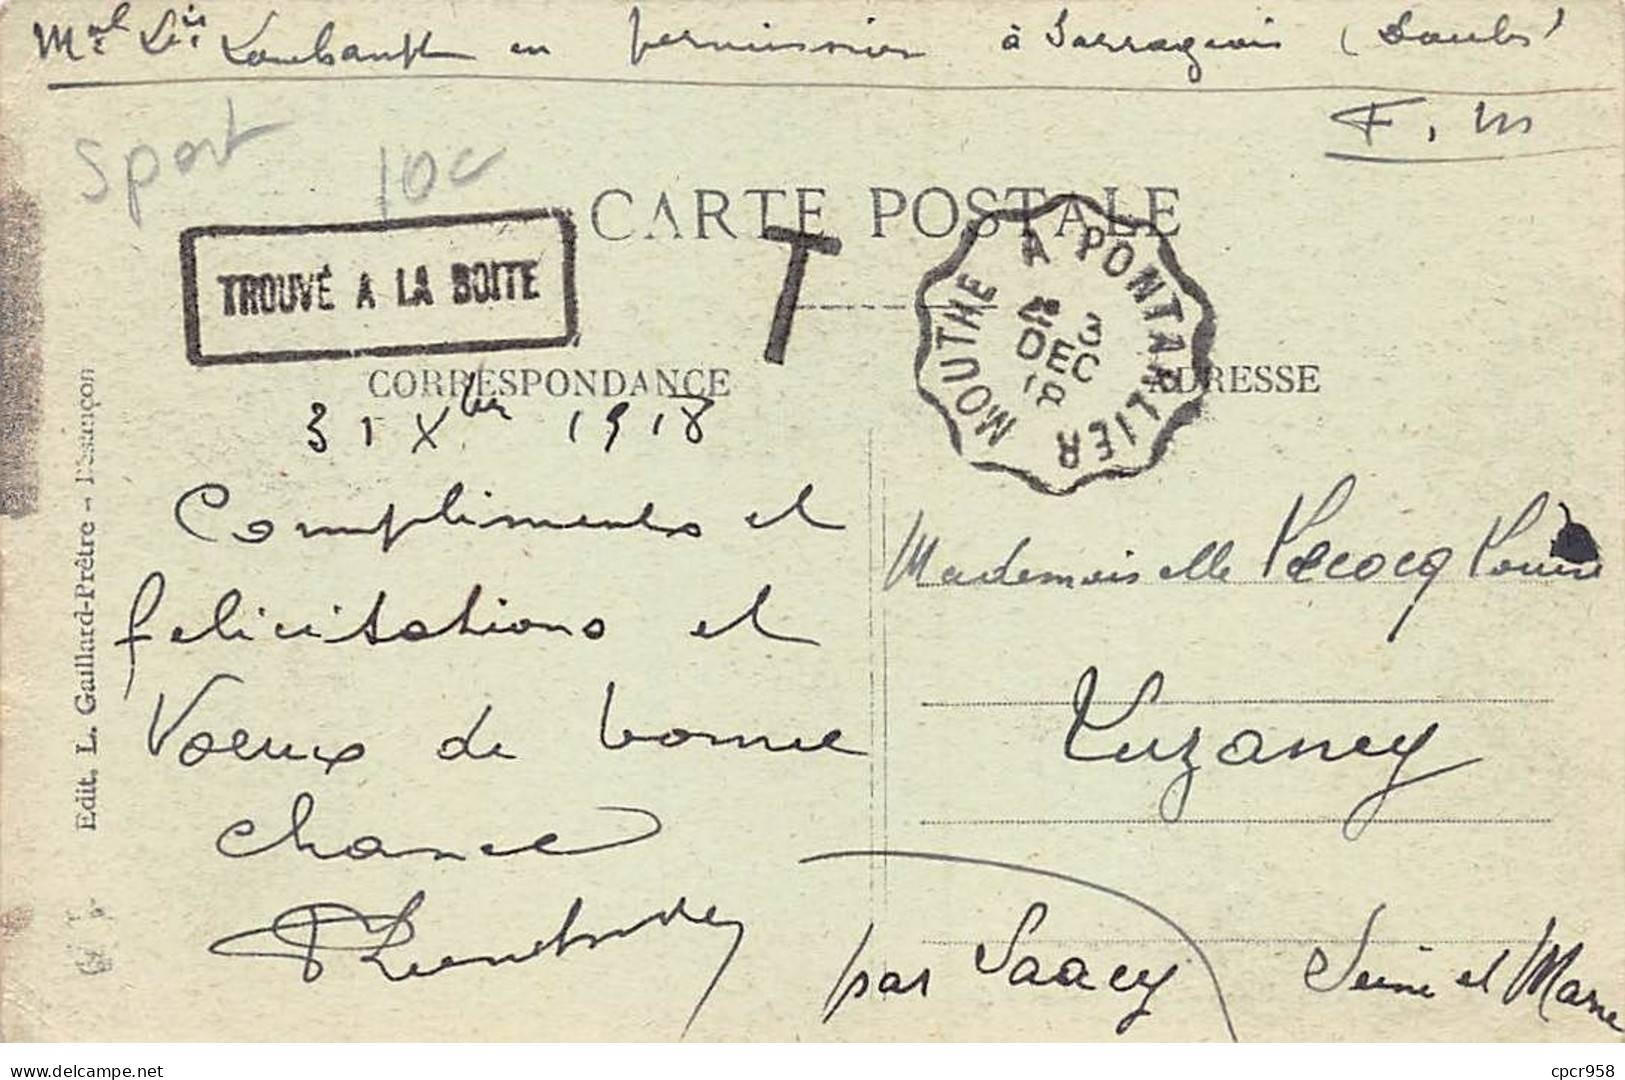 en permission à Sarrageois (Doubs)
F. M
Sport
10c
CARTE POSTALE
TROUVÉ A LA BOITE
T
MOUTHE A PONTARLIER
3
DEC
CORRESPONDANCE
ADRESSE
31 Xbre 1918
Compliments et
felicitations et
Voeux de bonne
chance
Mademoiselle Lecocq Louise
Luzancy
par Saacy Seine et Marne
Edit. L. Gaillard-Prêtre - Besançon
delcampe.net
cpcr958